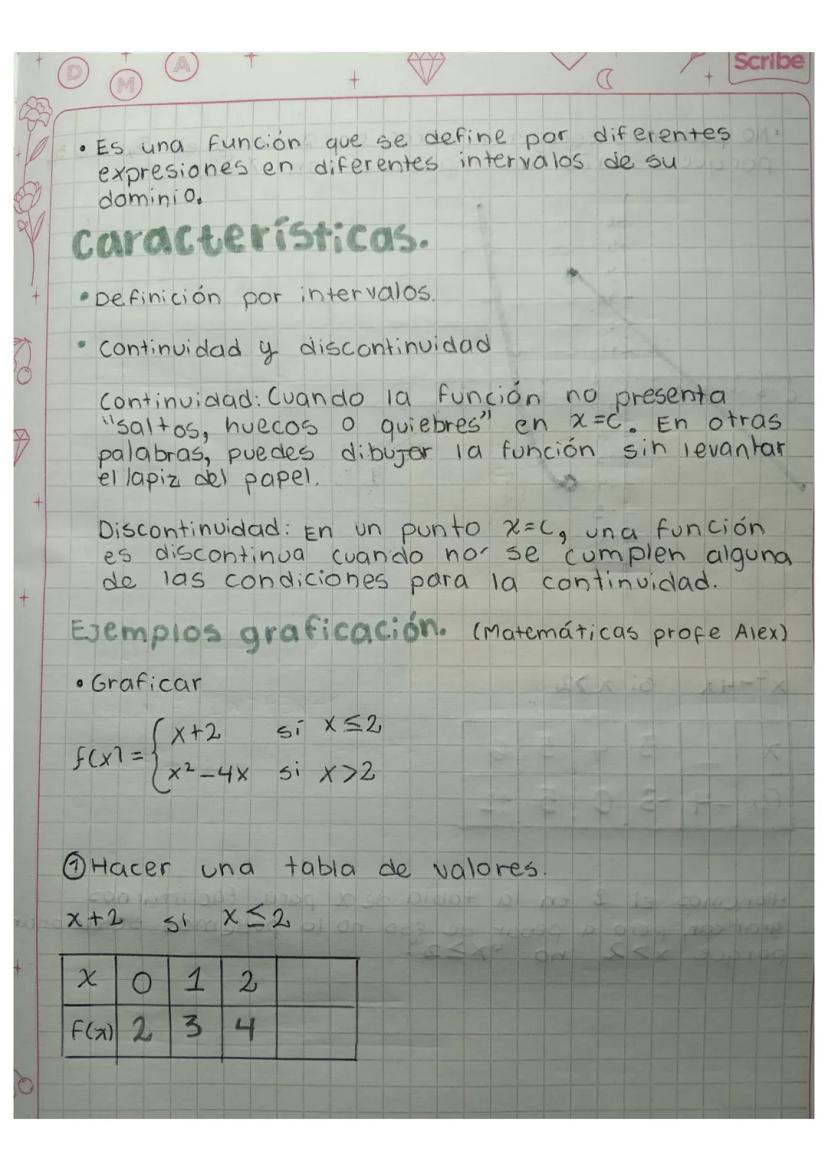 D M A
Scribe
• Es una función que se define por diferentes
expresiones en diferentes intervalos de su
dominio.
Características.
• Definición por intervalos.
• Continuidad y discontinuidad
Continuidad: Cuando la función no presenta
"saltos, huecos o quiebres" en x=c. En otras
palabras, puedes dibujar la función sin levantar
el lapiz del papel.
Discontinuidad: En un punto x=c, una función
es discontinua cuando no se cumplen alguna
de las condiciones para la continuidad.
Ejemplos graficación. (Matemáticas profe Alex)
• Graficar
f(x) = { x+2 si x≤2
x²-4x si x>2
① Hacer una tabla de valores.
x+2 si x≤2
x 0 1 2
f(x) 2 3 4